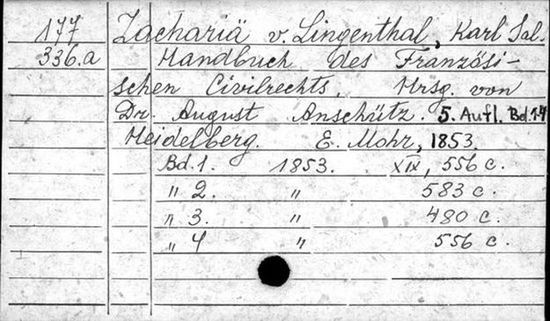 177 Zachariä v. Lingenthal, Karl Sal.
336.a Handbuch des Französi-
schen Civilrechts. Hrsg. von
Dr. August Anschütz. 5. Aufl. Bd. 1-4
Heidelberg. E. Mohr, 1853.
Bd. 1. 1853. XIX, 556 c.
" 2. " 583 c.
" 3. " 480 c.
" 4 " 556 c.